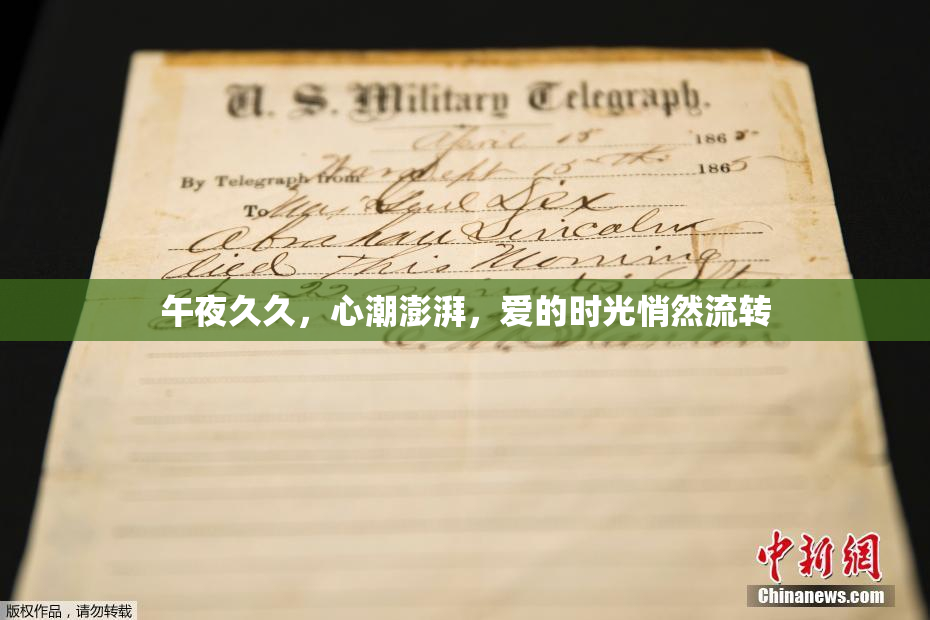 U. S. Military Telegraph.
April 15 1865
By Telegraph from War Dept 15th 1865
To Maj Genl Dix
Abraham Lincoln
died This Morning
at 22 minutes after
午夜久久，心潮澎湃，爱的时光悄然流转
E. M. Stanton
中新网
Chinanews.com
版权作品，请勿转载